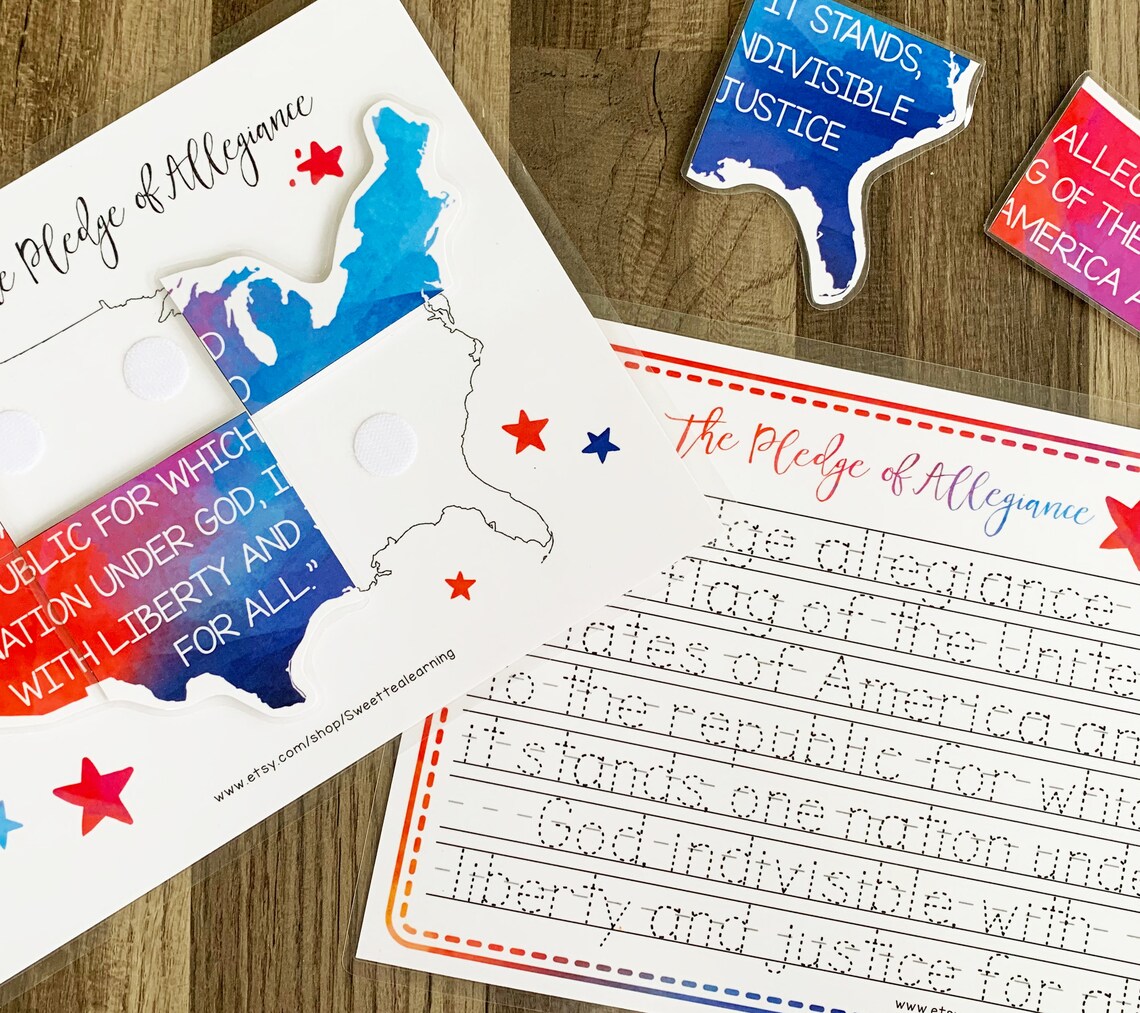 Pledge of Allegiance
UBLIC FOR WHICH
NATION UNDER GOD, I
WITH LIBERTY AND
FOR ALL.”
www.etsy.com/shop/Sweettealearning
IT STANDS,
NDIVISIBLE
JUSTICE
ALLEG
G OF THE
AMERICA A
The Pledge of Allegiance
ge allegiance
flag of the Unite
ates of America an
to the republic for whic
it stands, one nation unde
God indivisible with
liberty and justice for a
www.etsy